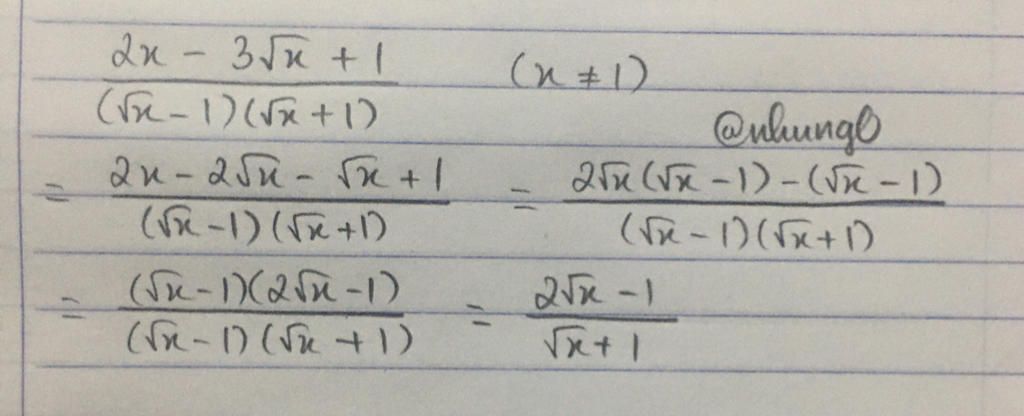 (2x - 3√x + 1)/((√x - 1)(√x + 1)) (x ≠ 1)
@nhungl
= (2x - 2√x - √x + 1)/((√x - 1)(√x + 1)) = (2√x(√x - 1) - (√x - 1))/((√x - 1)(√x + 1))
= ((√x - 1)(2√x - 1))/((√x - 1)(√x + 1)) = (2√x - 1)/(√x + 1)